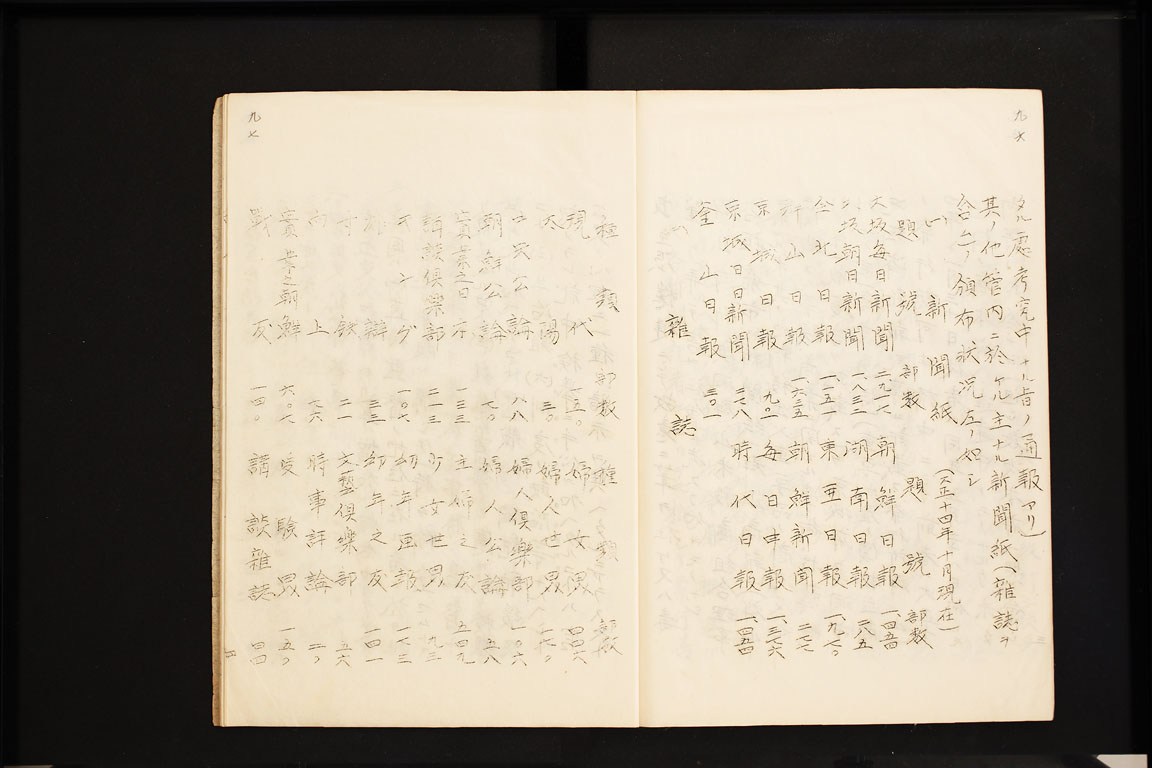 九六
タル處考究中ナル旨ノ通報アリ)
其ノ他管內ニ於ケル主ナル新聞紙(雜誌ヲ
含ム)ノ頒布狀況左ノ如シ
(一)新聞紙 (大正十四年十月現在)
題號 部數 題號 部數
大坂每日新聞 二、九一七 朝鮮日報 一、四五四
大坂朝日新聞 一、八三二 湖南日報 二八五
全北日報 一、一五一 東亜日報 一、九七〇
釜山日報 一、六三五 朝鮮新聞 二七七
京城日報 九〇一 每日申報 一、三七六
京城日日新聞 二七八 時代日報 一、四五四
釜山日報 三〇一
雜誌
九七
種類 部數 種類 部數
現代 一五〇 婦女界 四四六
太陽 三〇 婦人世界 二七〇
中央公論 八八 婦人俱樂部 一〇六
朝鮮公論 七〇 婦人公論 五八
實業之日本 一三三 主婦之友 五四九
講談俱樂部 二一三 少女世界 九三
キング 一〇七 幼年画報 一七三
雄辯 三三 幼年之友 一四一
寸鉄 二一 文藝俱樂部 五六
向上 七六 時事評論 二〇
實業之朝鮮 六〇七 受驗界 一五〇
戰友 一四〇 講談雜誌 四四